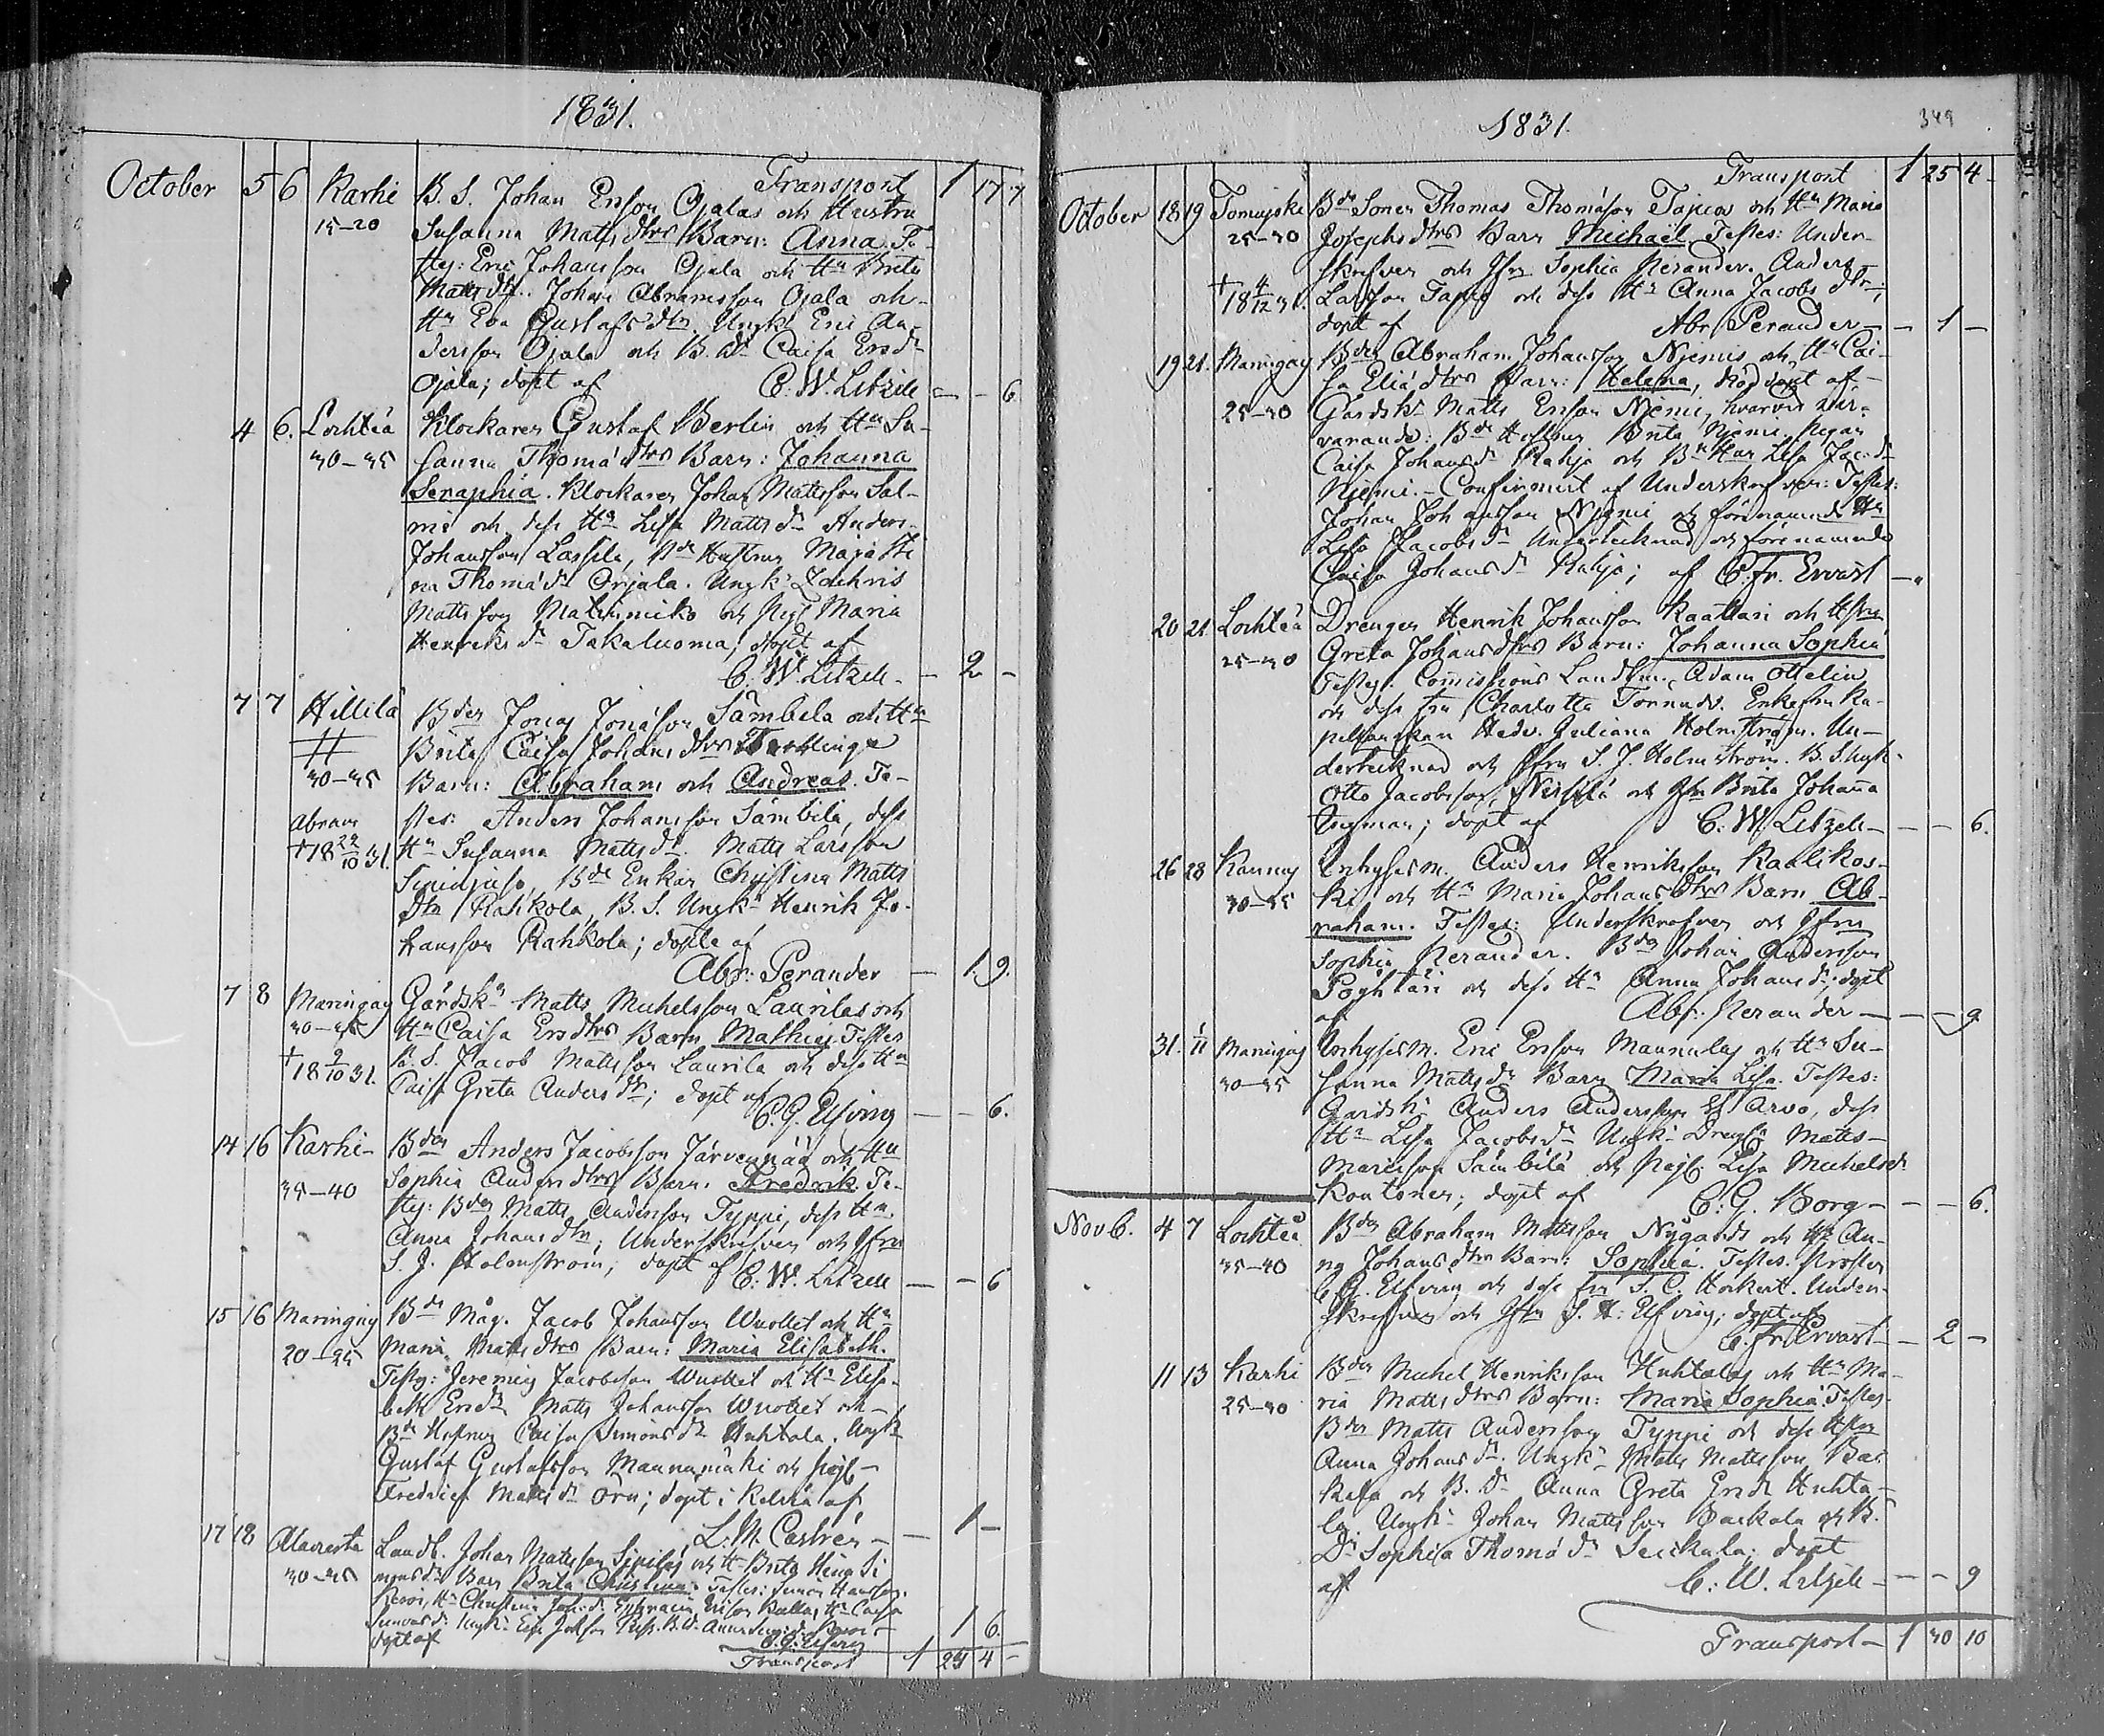 1831.
Transport 1 17 7
October 5 6 Karhi B. S. Johan Ersson Ojalas och Hustru
15-20 Susanna Mattsdtrs Barn: Anna Te-
stes: Eric Johansson Ojala och Hu Brita
Mattsdtr. Johan Abramsson Ojala och
Hu Eva Gustafsdtr Ungk. Eric An-
dersson Ojala och B. Dr Caisa Ersdr
Ojala; döpt af C. W. Litzell — — 6
4 6. Lochteå Klockaren Gustaf Berlin och Hu Su-
30-35 sanna Thomædtrs Barn: Johanna
Seraphia. Klockaren Johan Mattsson Sal-
mi och dess Hu Lisa Mattsdr Anders
Johansson Lassila, Bde Hustrun Maja Sti
na Thomædr Orjala. Ungk. Zachris
Mattsson och Pig. Maria
Henriksdr Takaluoma; döpt af
C. W. Litzell — 2 —
7 7 Hillilä Bden Jonas Jonasson Sämbilä och Hu
Brita Caisa Johansdtrs
30-35 Barn: Abraham och Andreas. Te-
Abram stes: Anders Johansson Sämbilä, dess
†18 22/10 31. Hu Susanna Mattsdr. Matts Larsson
Bde Enkan Christina Matts
Dtr Rahkola, B. S. Ungk. Henrik Jo-
hansson Rahkola; döpte af
Abr: Perander — 1. 9.
7 8 Maringay Gårdsk. Matts Michelsson Laurilas och
30-35 Hu Caisa Ersdtrs Barn Mathias Testes
†18 9/10 31. B. S. Jacob Mattsson Laurila och dess Hu
Caisa Greta Andersdr; döpt af
C. G. Elfving — — 6.
14 16 Karhi- Bden Anders Jacobsson Järvenpää och Hu
35-40 Sophia Andersdtrs Barn. Fredrik. Te-
stes: Bden Matts Andersson Typpi, dess Hu
Anna Johansdtr; Underskrifven och Jfru
S. J. Holmström; döpt af C. W. Litzell — — 6
15 16 Maringay Bde Måg. Jacob Johansson Wuollet och Hu
20-25 Maria Mattsdtrs Barn: Maria Elisabeth.
Testes: Jeremias Jacobsson Wuollet och Hu Elisa-
beth Ersdr Matts Johansson Wuollet och
Bde Hustrun Caisa Simonsdr Huhtala. Ungk.
Gustaf Gustafsson Mannamäki och Pig.
Fredrica Mattsdr Örn; döpt i Kelviå af
L. M. Castrén — 1 —
17 18 Alavesta Landb. Johan Mattsson Sipilas och Hu Brita Si
30-35 monsdr Barn Brita Christina. Testes: Simon Hansson
Hu Christina Joh.dr Ephraim Ersson Hu Caisa
Simonsdr Ungk. B. Dr Anna 1 6.
döpt af C. G. Elfving
Transport 1 25 4 —
1831. 349
Transport 1 25 4 —
October 18 19 Tomujoki Bde Sonen Thomas Thomasson Tapios och Hu Maria
25-30 Josephsdtrs Barn Michaël. Testes: Under-
skrifven och Jfru Sophia Perander. Anders
†18 4/12 31. Larsson Tapio och dess Hu Anna Jacobsdtr;
döpt af Abr Perander — — 1 —
19 21. Maringay Bden Abraham Johansson Niemis och Hu Cai-
sa Eliædtrs Barn: Helena, nöddöpt af
25-30 Gårdsk. Matts Ersson Niemi, hvarvid när-
varande: Bde Hustrun Brita Niemi Pigan
Caisa Johansdr Rahja och Bde Hun Lisa Jac.dr
Niemi. — Confirmerat af Underskrifven: Testes:
Johan Johansson Niemi och förenämnde Hu
Lisa Jacobsdr Undertecknad och förenämnde
Caisa Johansdr Rahja; af C. Fr. Ervast — „
20 21 Lochteå Drengen Henrik Johansson Raattari och Hstru
25-30 Greta Johansdtrs Barn: Johanna Sophia
Testes: Commissions Landtm. Adam Ottelin
och dess fru Charlotta Tornudd. Enkefru Ka-
pellanskan Hedv. Juliana Holmström. Un-
dertecknad och Jfru S. J. Holmström. B. S. Ungk.
Otto Jacobsson och Jfru Brita Johanna
döpt af C. W. Litzell — — — 6.
26 28 Kannus Inhyses m. Anders Henriksson Kaalikos-
30-35 ki och Hu Maria Johansdtrs Barn Ab-
raham. Testes: Underskrifven och Jfru
Sophia Perander. Bden Johan Andersson
Pöyhtäri och dess Hu Anna Johansdr; döpt
af Abr: Perander — — — 9
31. 1/11 Maringay Inhyses m. Eric Ersson Mannulas och Hu Su-
30-35 sanna Mattsdr Barn Maria Lisa. Testes:
Gårdsk. Anders Andersson Arvo, dess
Hu Lisa Jacobsdr Ungk. Dreng. Matts
Mattsson Sämbilä och Pig. Lisa Michelsdr
döpt af C. G. Borg — — — 6.
Novb. 4 7 Lochteå Bden Abraham Mattsson Nygårds och Hu An-
35-40 na Johansdtrs Barn: Sophia. Testes: Prosten
C. G. Elfving och dess fru S. C. Under-
skrifven och Jfru S. H: Elfving; döpt af
C. Fr. Ervast — — 2 —
11 13 Karhi Bden Michel Henriksson Huhtalas och Hu Ma-
25-30 ria Mattsdtrs Barn: Maria Sophia Testes.
Bden Matts Andersson Typpi och dess Hstru
Anna Johansdr. Ungk. Matts Mattsson
och B. Dr Anna Greta Ersdr Huhta-
la. Ungk. Johan Mattsson och B.
Dr Sophia Thomædr döpt
af C: W. Litzell — — — 9
Transport — 1 30 10